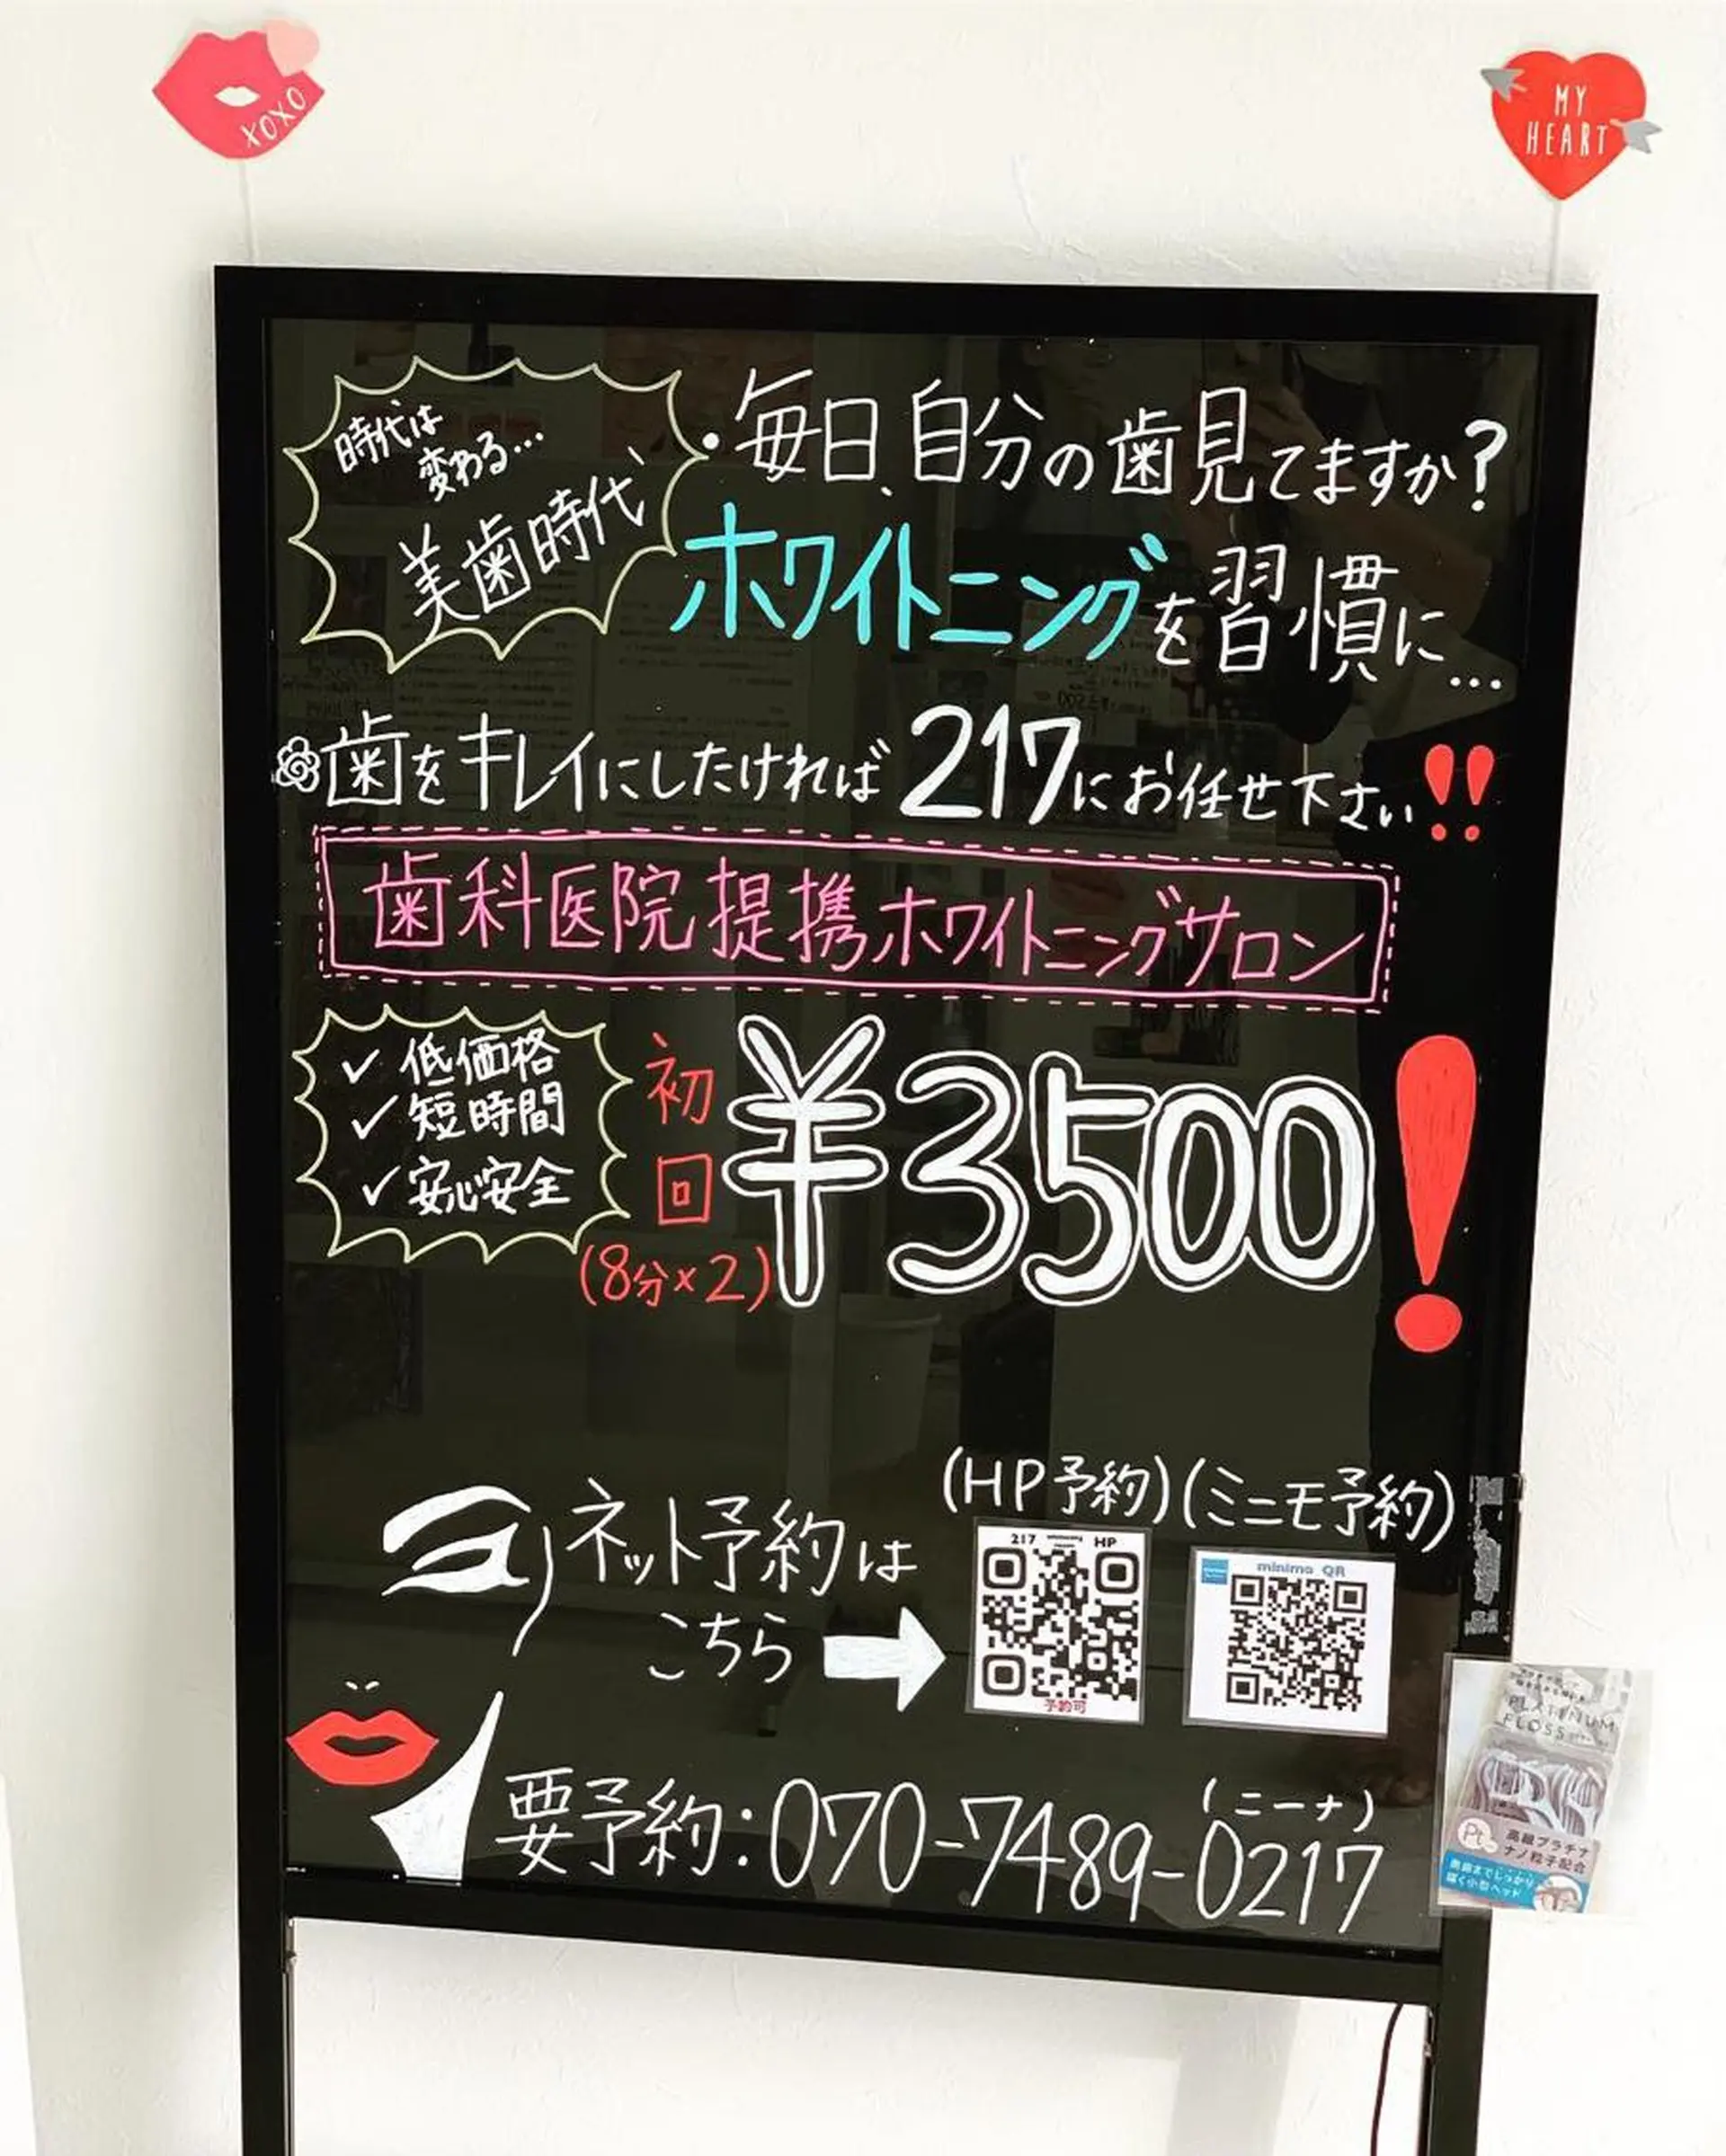 XOXO
MY
HEART
時代は
変わる…
美歯時代
・毎日、自分の歯見てますか?
ホワイトニングを習慣に…
歯をキレイにしたければ217にお任せ下さい!!
歯科医院提携ホワイトニングサロン
✓低価格
✓短時間
✓安心安全
初回
(8分×2)
¥3500!
(HP予約)(ミニモ予約)
ネット予約は
こちら
217 HP
予約可
minimo QR
要予約:070-7489-0217
(ニーナ)
PLATINUM
FLOSS
Pt
高級プラチナ
ナノ粒子配合
奥歯までしっかり
届く小型ヘッド